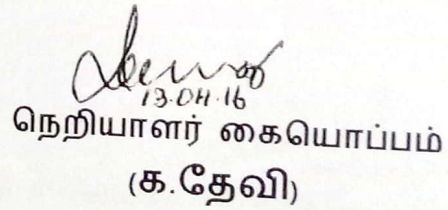 13.04.16
நெறியாளர் கையொப்பம்
(க.தேவி)